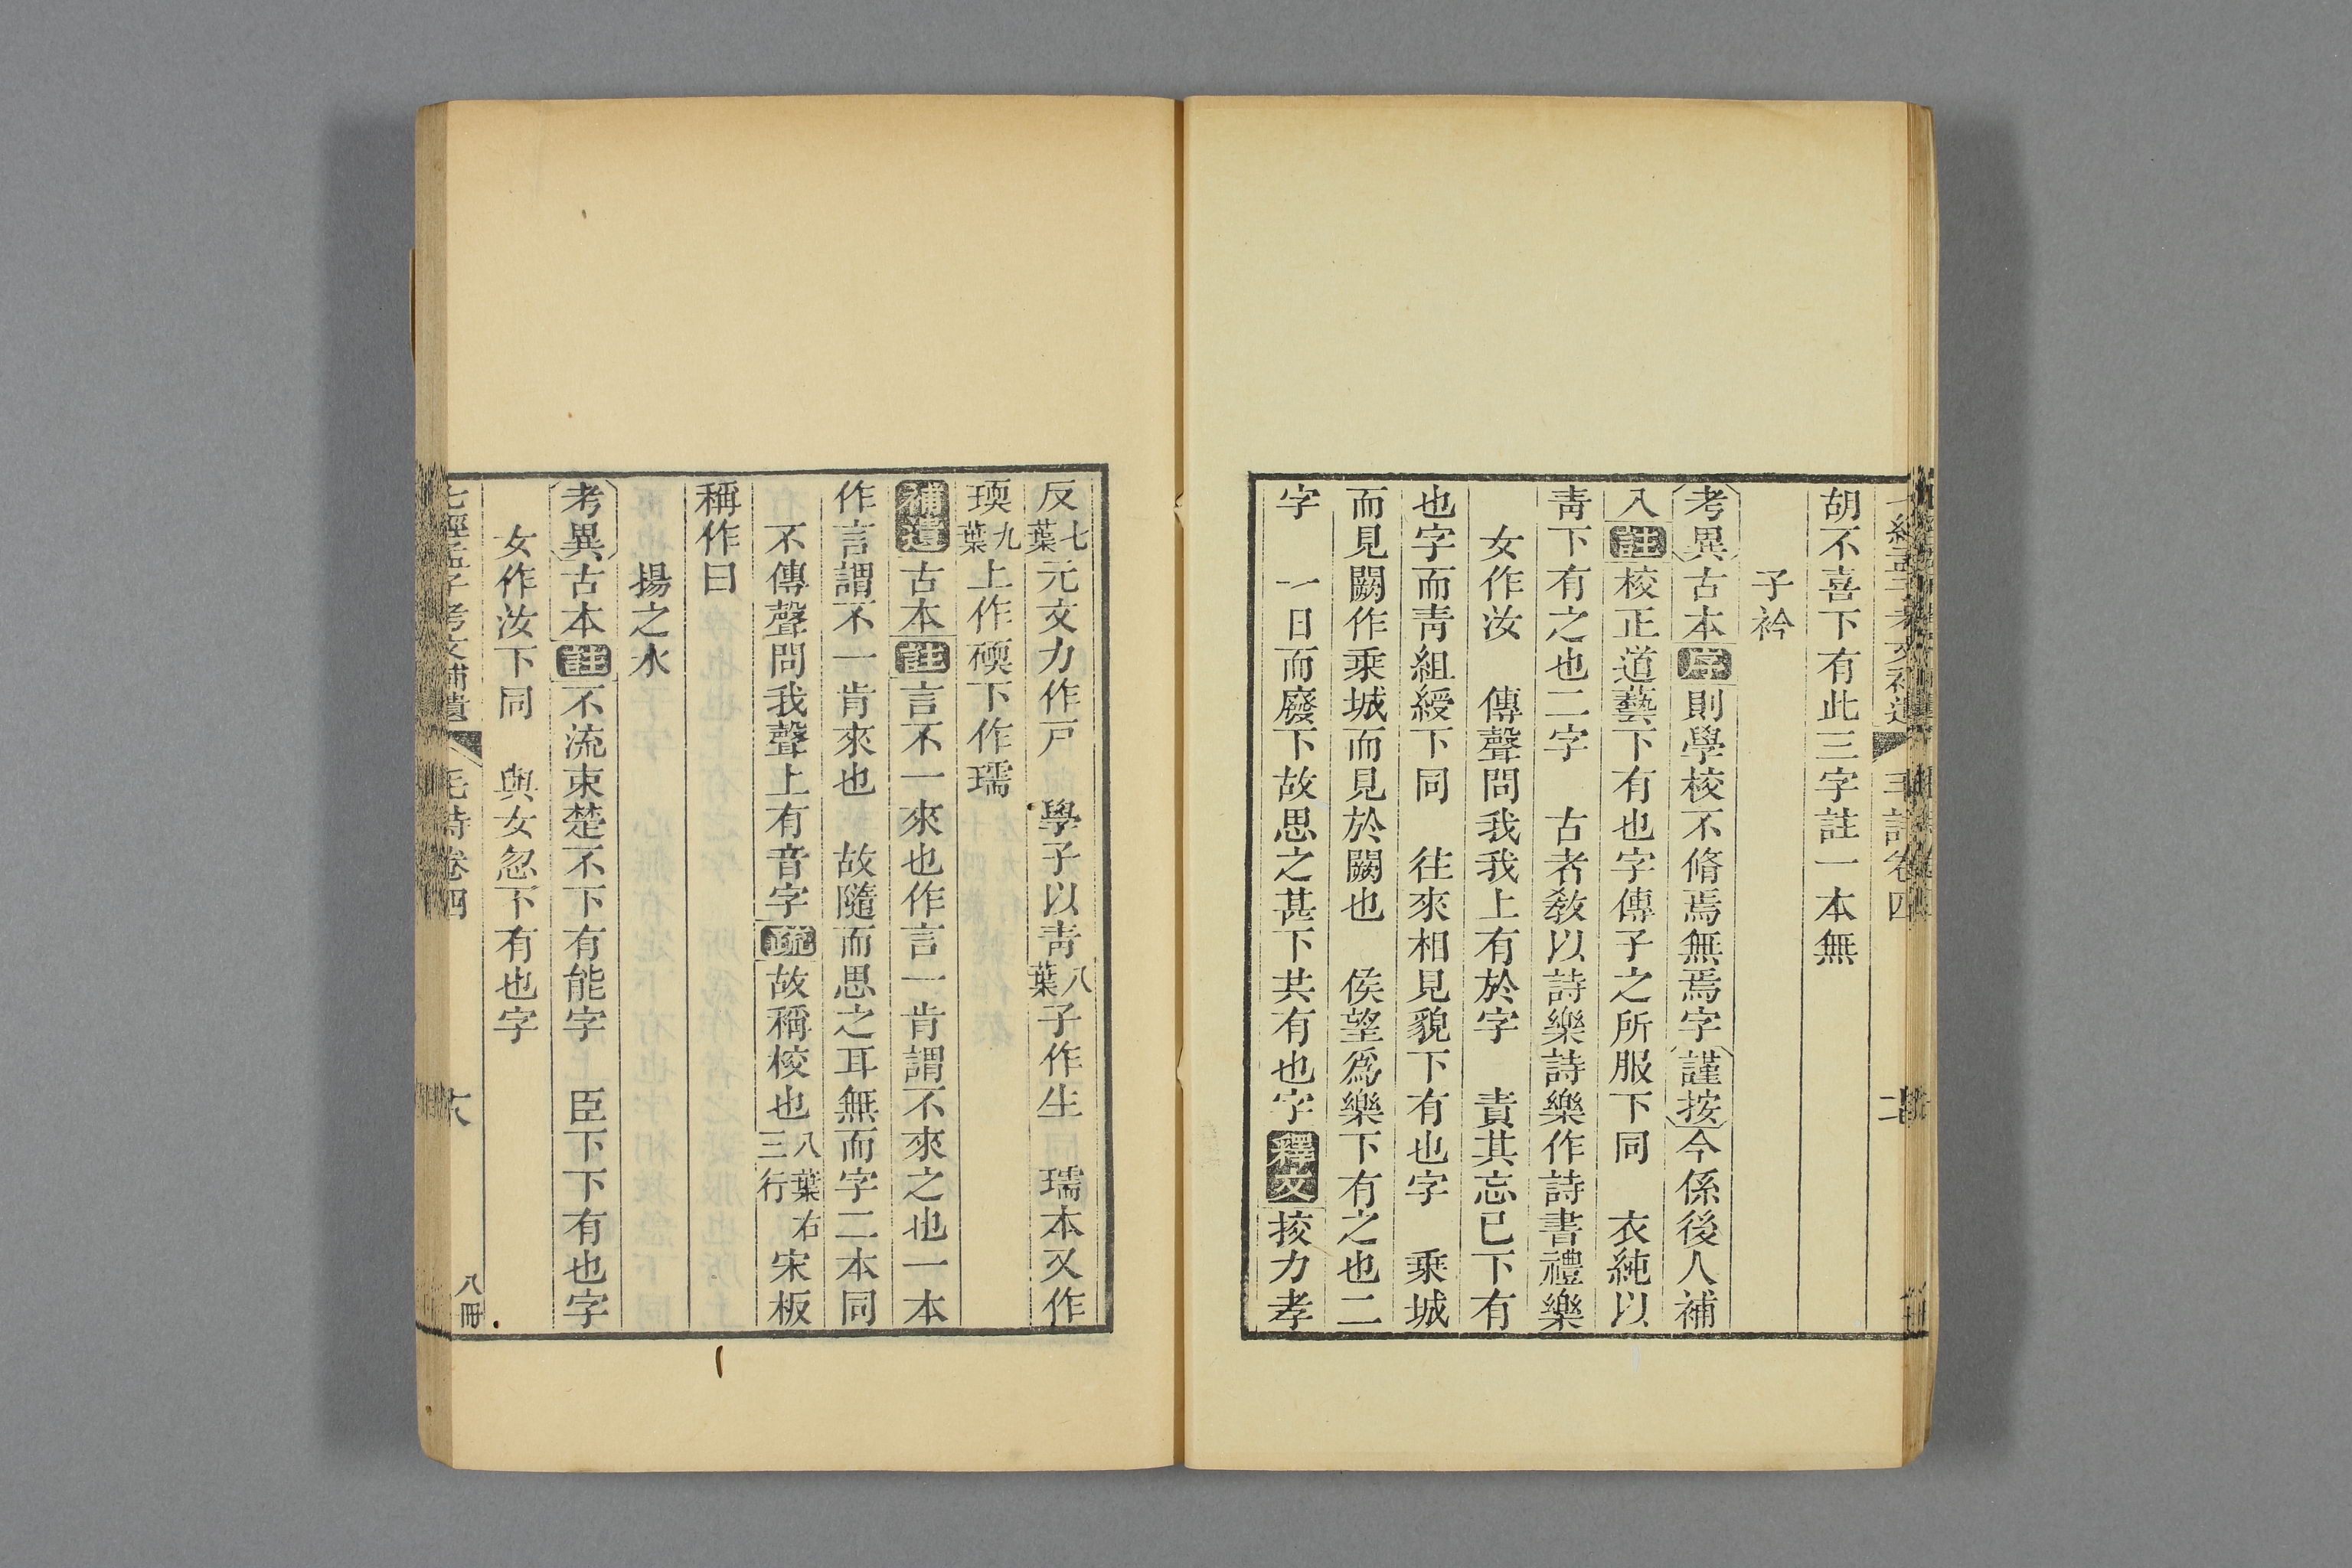 胡不喜下有此三字註一本無
子衿
考異古本序則學校不脩焉無焉字謹按今係後人補
入註校正道藝下有也字傳子之所服下同 衣純以
靑下有之也二字 古者敎以詩樂詩樂作詩書禮樂
女作汝 傳聲問我我上有於字 責其忘已下有
也字而靑組綬下同 往來相見貌下有也字 乘城
而見闕作乘城而見於闕也 侯望爲樂下有之也二
字 一日而廢下故思之甚下共有也字釋文挍力孝
反七葉元文力作戸 學子以靑八葉子作生 瓀本又作
瑌九葉上作碝下作瓀
補遺古本註言不一來也作言一肯謂不來之也一本
作言謂不一肯來也 故隨而思之耳無而字二本同
不傳聲問我聲上有音字疏故稱校也八葉右三行宋板
稱作曰
揚之水
考異古本註不流束楚不下有能字 臣下下有也字
女作汝下同 與女忽下有也字
七經孟子考文補遺 毛詩卷四 八冊